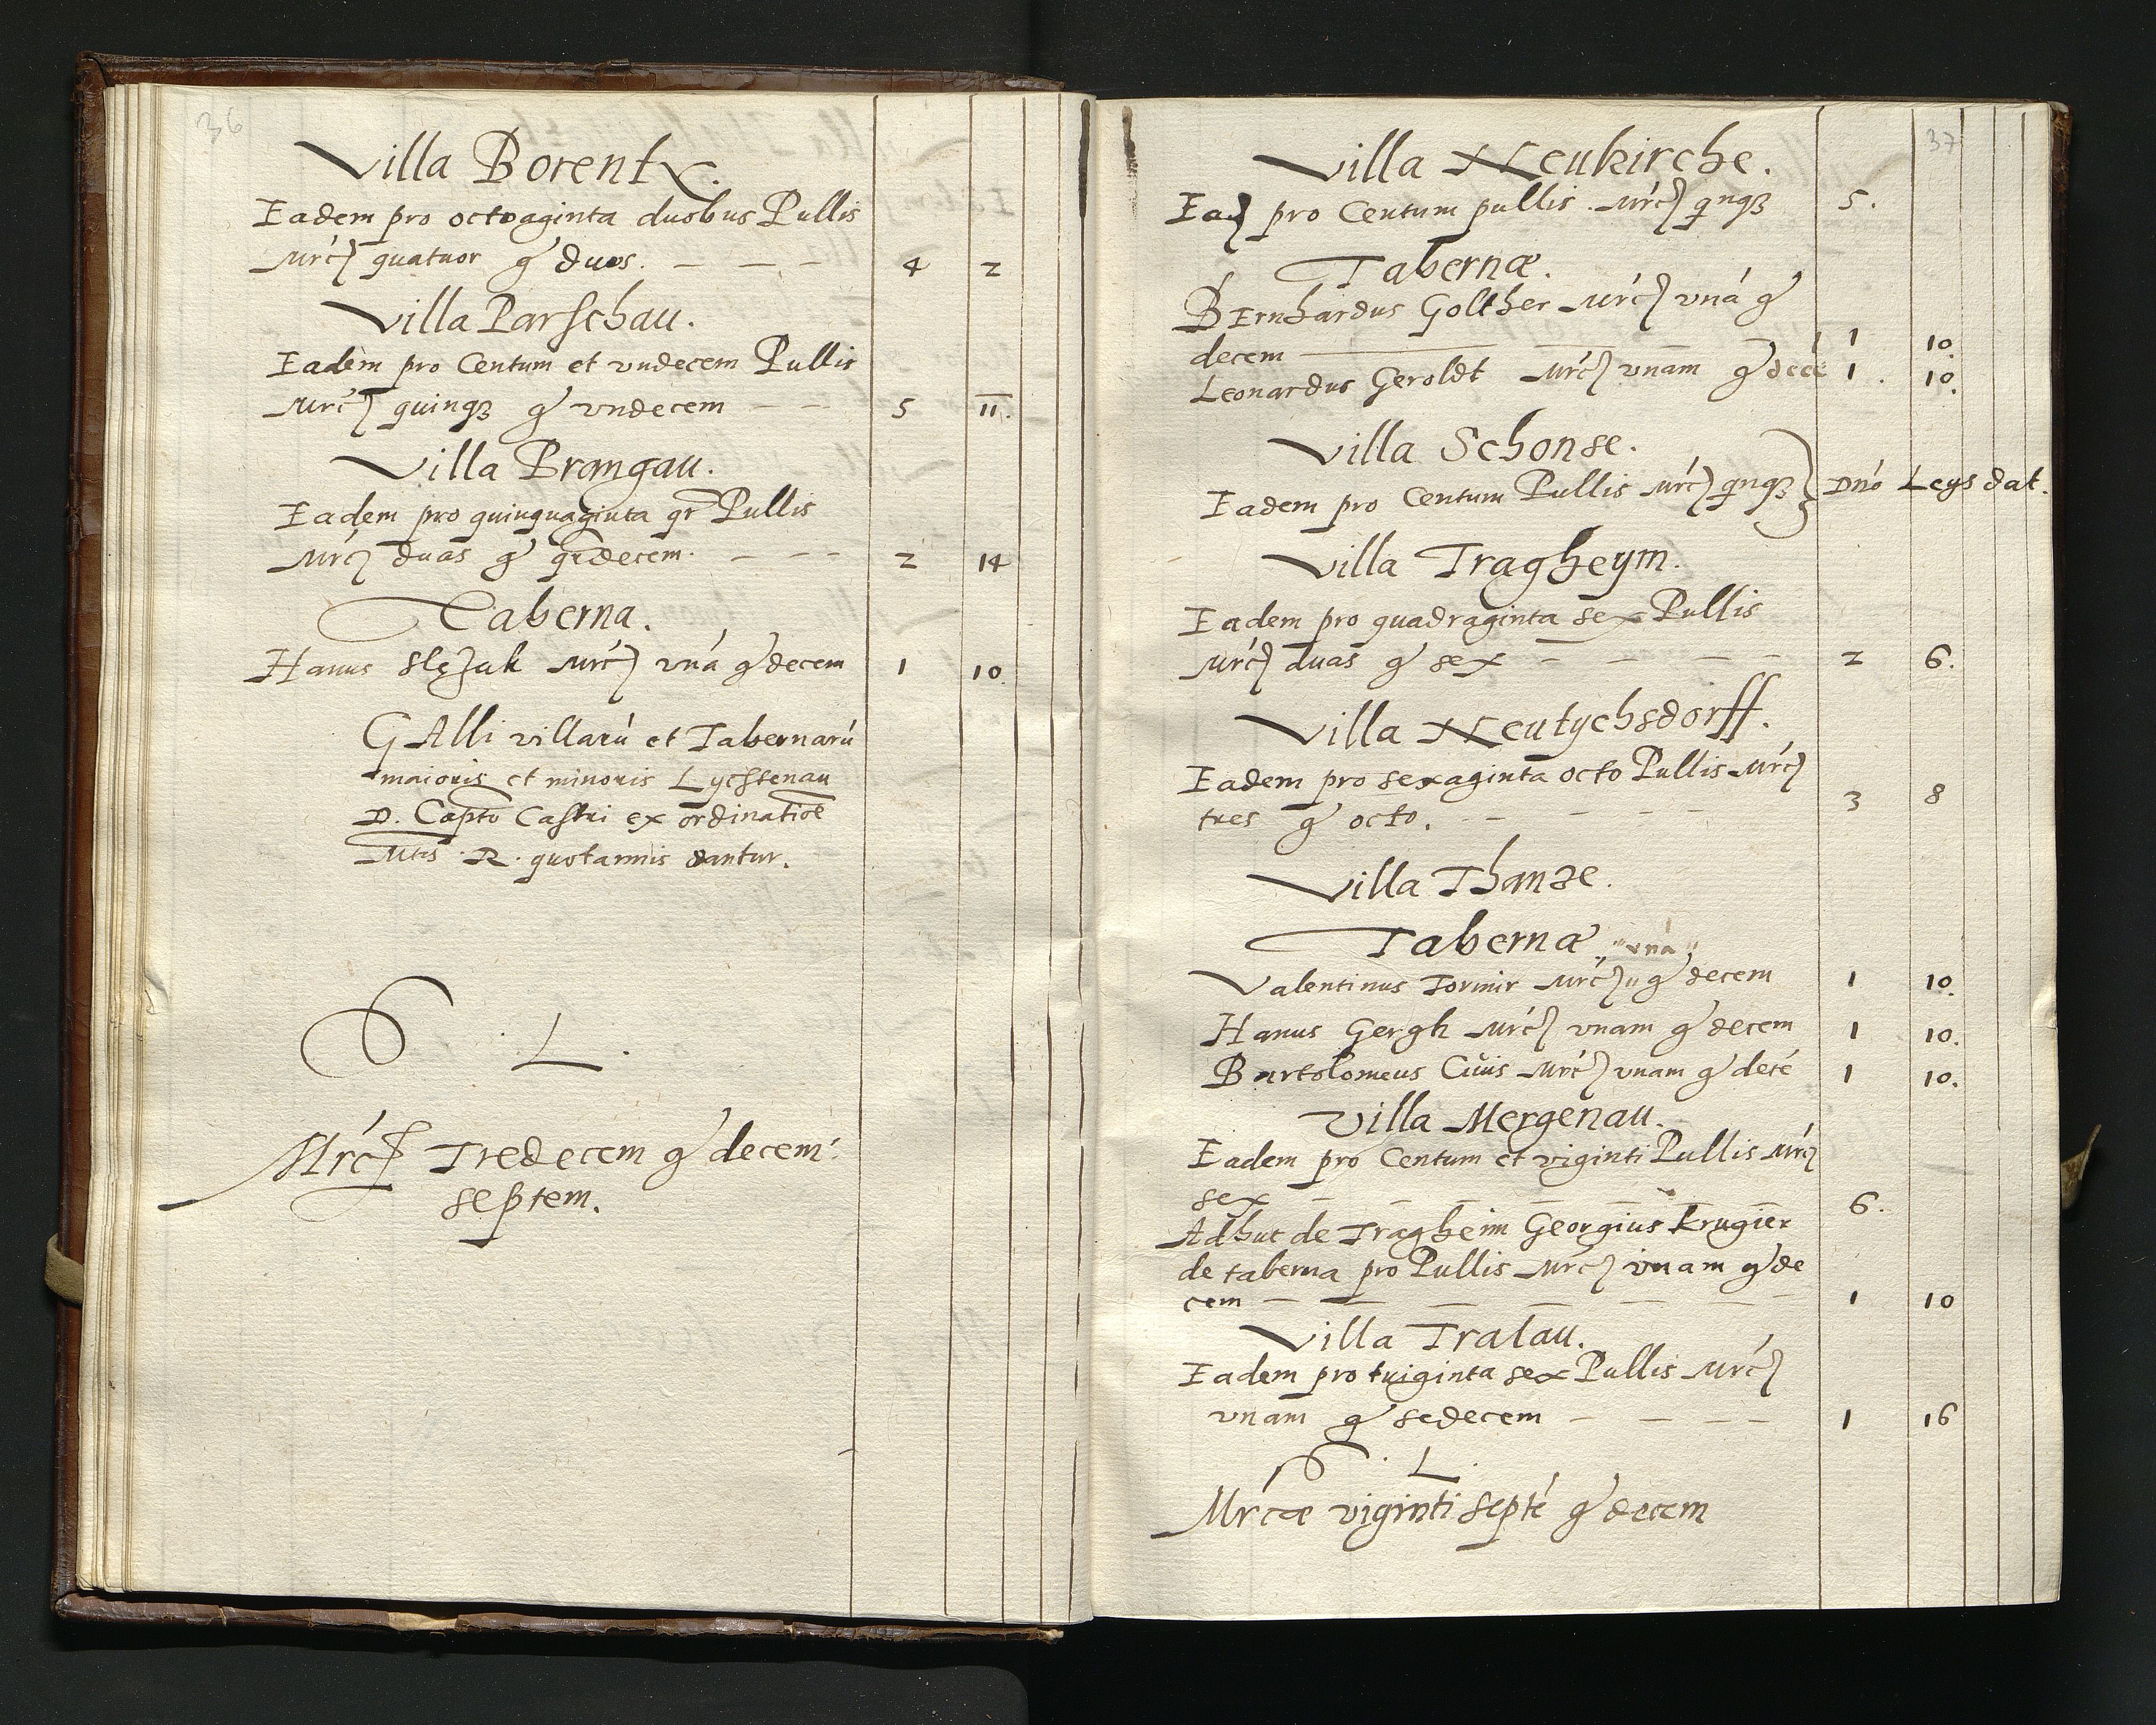 36
Villa Borentx.
Eadem pro octoaginta duobus Pullis
Mrć quatuor g duos. — — — 4 2
Villa Parschau.
Eadem pro Centum et vndecem Pullis
Mrć quinqȝ g vndecem — — 5 11.
Villa Brangau.
Eadem pro quinquaginta qr Pullis
Mrć duas g qrdecem. — — — 2 14
Taberna.
Hanus Slęzak Mrć vná g decem 1 10
GAlli villarú et Tabernarú
maioris et minoris Lychtenau
D. Capto Castri ex ordinatioe
Mtis . R . quotannis dantur.
L .
Mrć Tredecem g decem:
septem.
37
Villa Neukirche.
Eadȝ pro Centum pullis Mrć qnqȝ 5.
Tabernæ.
BErnhardus Golther Mrć vná g
decem — 1 10.
Leonardus Geroldt Mrć vnam g decé 1 . 10.
Villa Schonse.
Eadem pro Centum Pullis Mrć qnqȝ } Dnó Leys dat.
Villa Tragheym.
Eadem pro quadraginta sex Pullis
Mrć duas g sex — — — — 2 6.
Villa Neutychsdorff.
Eadem pro sexaginta octo Pullis Mrć
tres g octo. — — — 3 8
Villa Thanse.
Tabernæ
"vná"
Valentinus Formir Mrć " g decem 1 10.
Hanus Gergh Mrć vnam g decem 1 10.
Bartolomeus Cŭus Mrć vnam g decé 1 10.
Villa Mergenau.
Eadem pro Centum et viginti Pullis Mrć
sex — — — — — — 6.
Adhuc de Tragheim Georgius Krugier
de taberna pro Pullis Mrć vnam g de
cem — — — — — — 1 10
Villa Tralau.
Eadem pro triginta sex Pullis Mrć
vnam g sedecem — — — — 1 16
. L .
Mrcæ viginti septé g decem